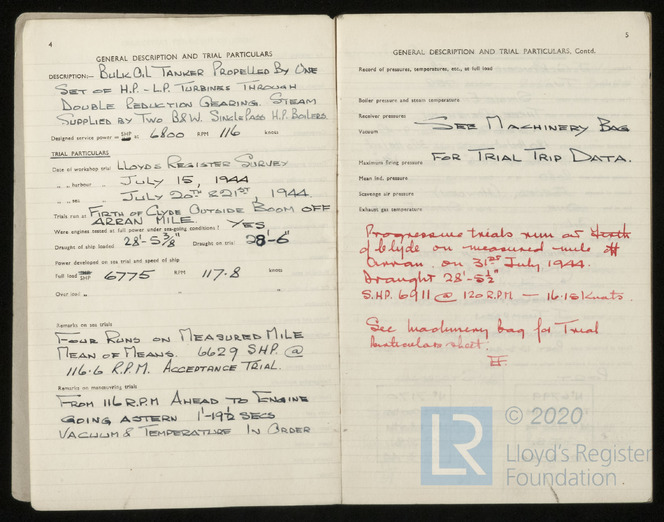 4
GENERAL DESCRIPTION AND TRIAL PARTICULARS
DESCRIPTION:- BULK OIL TANKER PROPELLED BY ONE
SET OF H.P. - L.P. TURBINES THROUGH
DOUBLE REDUCTION GEARING. STEAM
SUPPLIED BY TWO B&W. SINGLE PASS H.P. BOILERS.
Designed service power = SHP at 6800 RPM 116 knots
TRIAL PARTICULARS
Date of workshop trial LLOYDS REGISTER SURVEY
" " harbour " JULY 15, 1944
" " sea " JULY 20TH & 21ST, 1944.
Trials run at FIRTH OF CLYDE OUTSIDE BOOM OFF
ARRAN MILE.
Were engines tested at full power under sea-going conditions? YES
Draught of ship loaded 28'-5 3/8" Draught on trial 28'-6"
Power developed on sea trial and speed of ship
Full load SHP 6775 RPM 117.8 knots
Over load " "
Remarks on sea trials
FOUR RUNS ON MEASURED MILE
MEAN OF MEANS. 6629 SHP. @
116.6 R.P.M. ACCEPTANCE TRIAL.
Remarks on manœuvring trials
FROM 116 R.P.M AHEAD TO ENGINE
GOING ASTERN 1'-19½ SECS
VACUUM & TEMPERATURE IN ORDER
5
GENERAL DESCRIPTION AND TRIAL PARTICULARS, Contd.
Record of pressures, temperatures, etc., at full load
Boiler pressure and steam temperature
Receiver pressures
Vacuum SEE MACHINERY BAG
Maximum firing pressure FOR TRIAL TRIP DATA.
Mean ind. pressure
Scavenge air pressure
Exhaust gas temperature
Progressive trials run at Firth
of Clyde on measured mile off
Arran. on 31st July 1944.
Draught 28'-5½"
S.H.P. 6911 @ 120 R.P.M — 16.15 Knots.
See machinery bag for Trial
particulars sheet.
LR © 2020
Lloyd's Register
Foundation